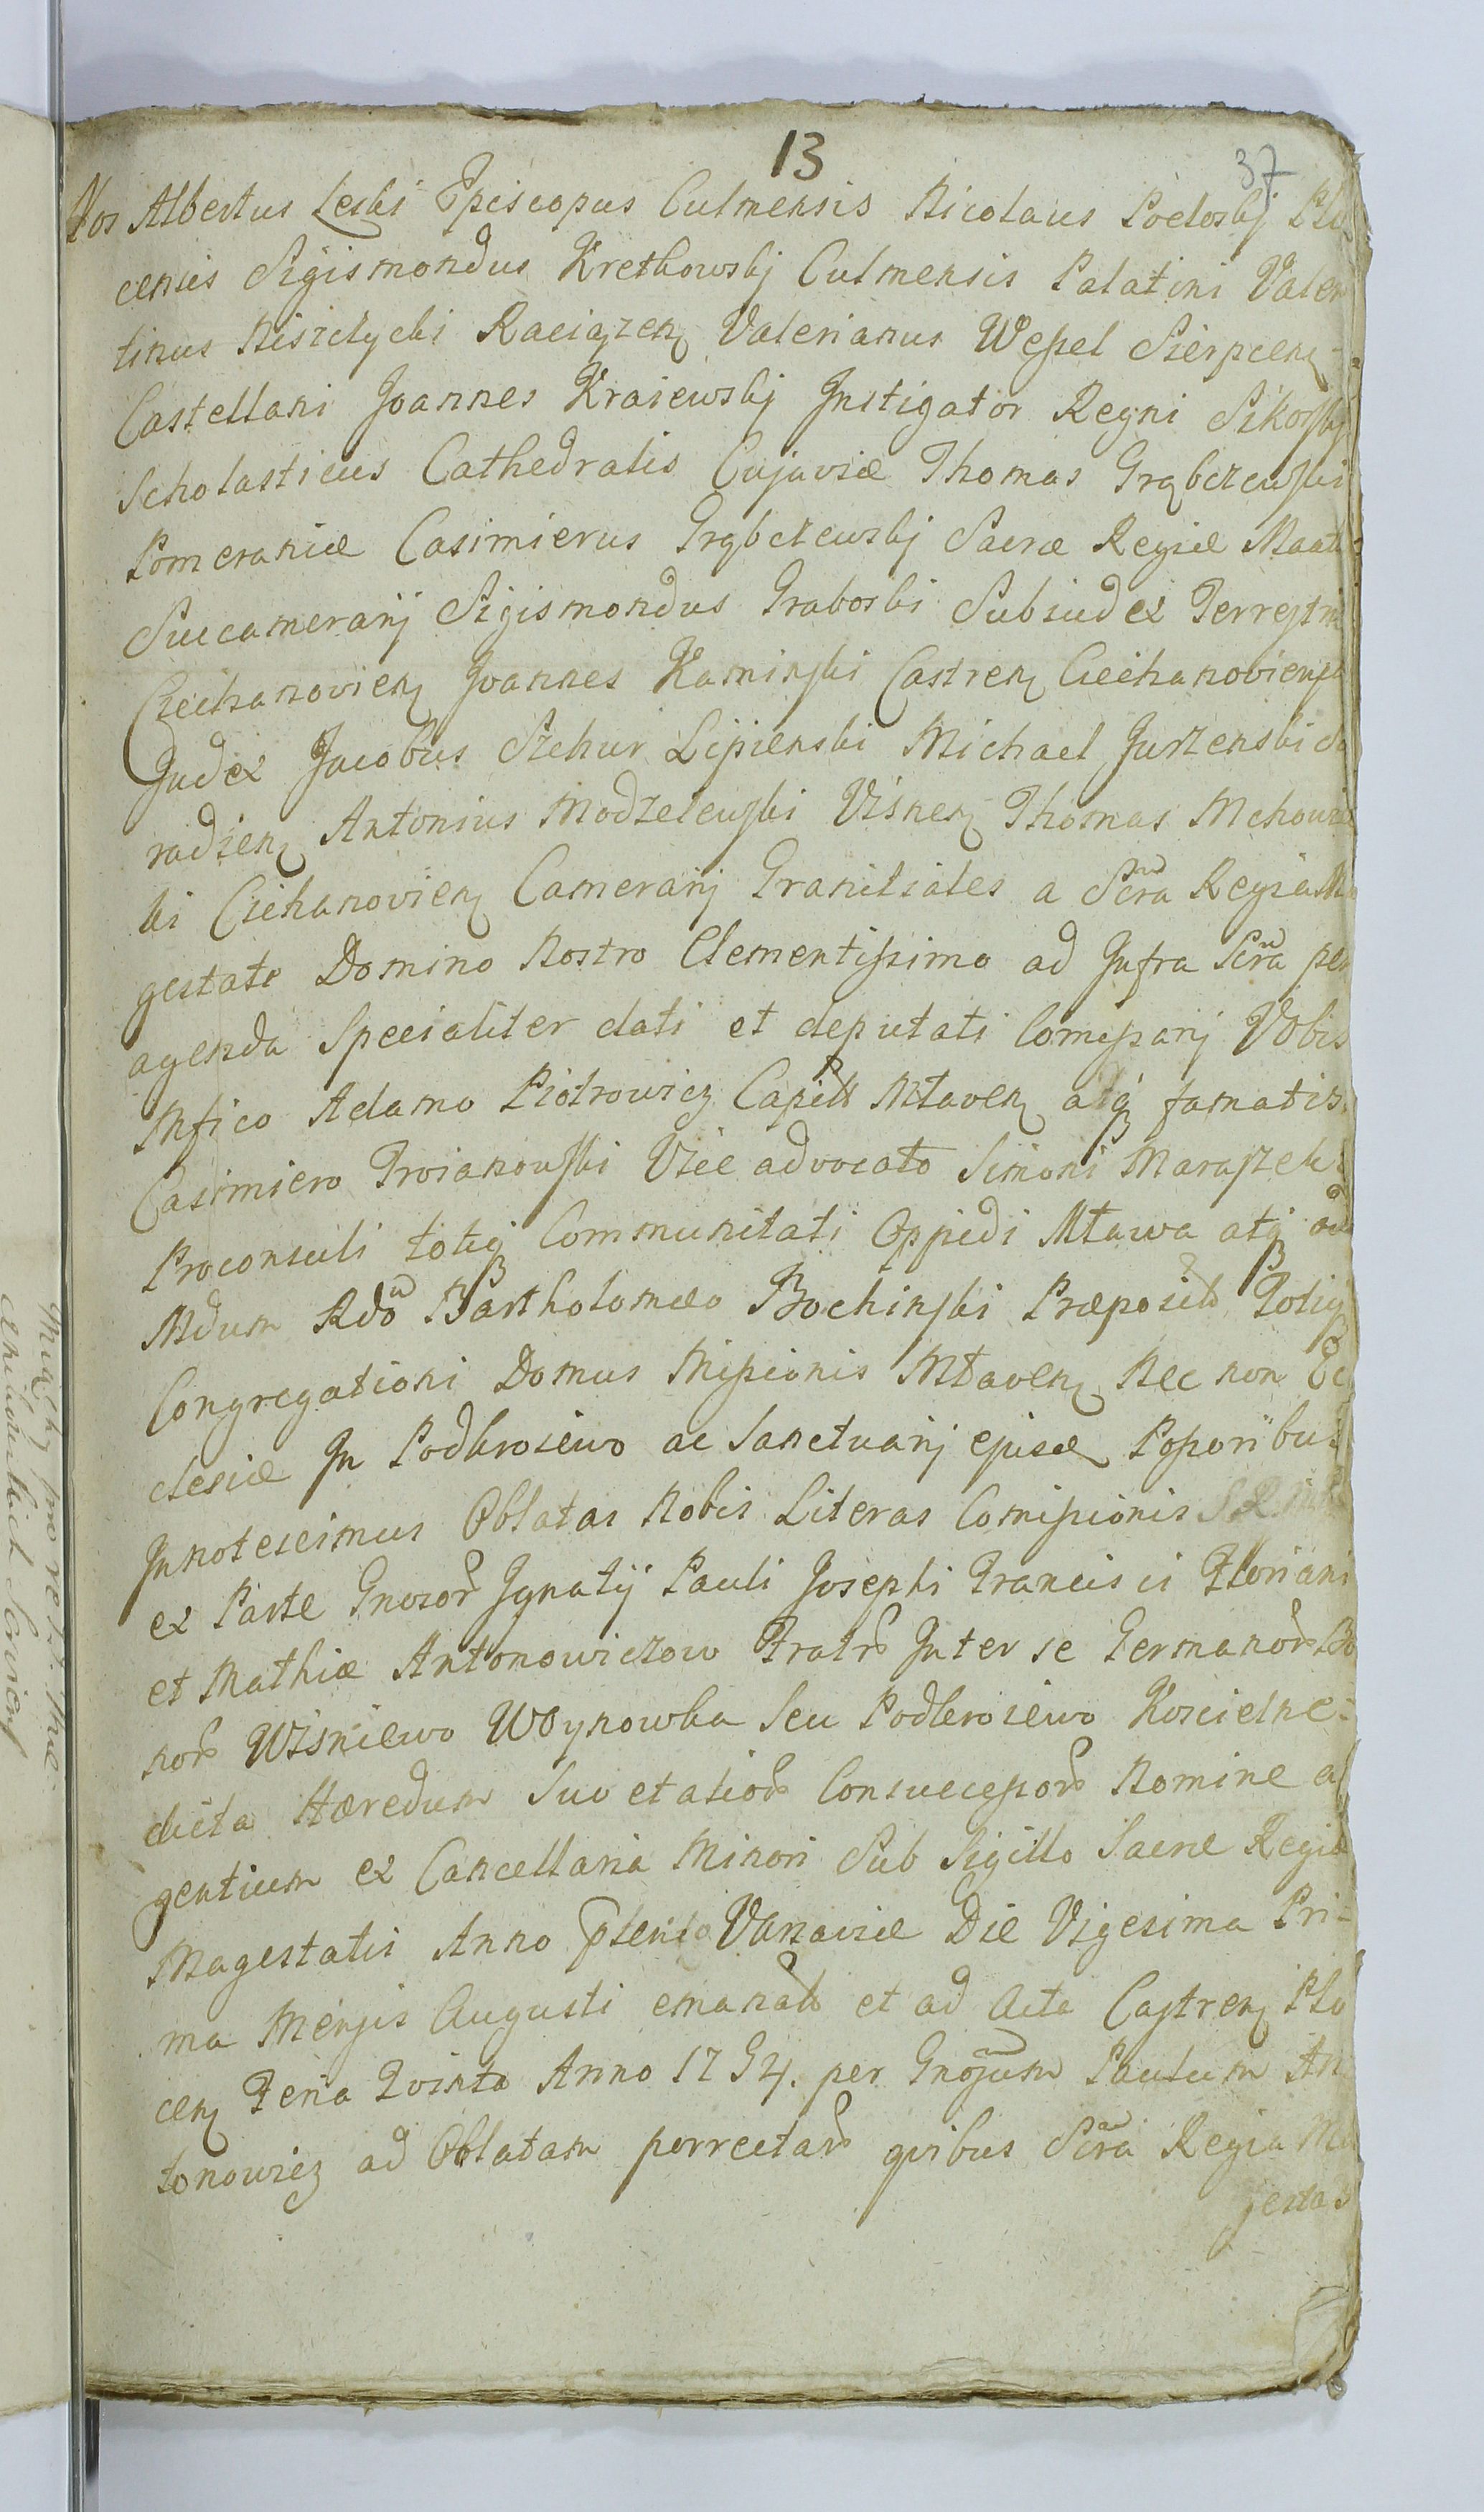 13
37
Nos Albertus Leski Episcopus Culmensis Nicolaus Podoskj Plo
censis Sigismondus Kretkowskj Culmensis Palatini Valen
tinus Nisczycki Raciązen Valerianus Wessel Sierpcen
Castellani Joannes Kraiewskj Instigator Regni Sikorskj
Scholasticus Cathedralis Cujaviæ Thomas Grąbczewski
Pomeraniæ Casimierus Grąbczewskj Sacræ Regiæ Maat
Succamerarij Sigismondus Graboski Subiudex Terrestris
Czechanovien Joannes Kaminski Castren Ciechanoviensis
Judex Jacobus Szchur Lipienski Michael Jurzenski
radzien Antonius Modzelewski Visnen Thomas Mchows
ki Ciehanovien Camerarij Granitiales a Scra Regia Ma
gestate Domino Nostro Clementissimo ad Infra Scra per
agenda Specialiter dati et deputati Comissarij Vobis
Mfico Adamo Piotrowicz Capit Mlaven atq famatis
Casimiero Troianowski Vice advocato Simoni Maraszek
Proconsuli totiq Communitati Oppidi Mława atq ad
Mdum Rdo Bartholomæo Bochinski Præposit Totiq
Congregationi Domus Missionis Mlaven Nec non Ec
clesiæ In Podkrosiewo ac Sanctuarij ejusd Possoribus
Innotescimus Oblatas Nobis Literas Comissionis S. R.
ex Parte Gnosor Ignatij Pauli Josephi Francisci Floriani
et Mathiæ Antonowiczow Fratr Inter se Germanor Bo
nor Wisniewo Woynowka Seu Podkrosiewo Koscielne
dicta Hæredum Suo et alior Consuccessor Nomine a
gentium ex Cancellaria Minori Sub Sigillo Sacræ Regiæ
Magestatis Anno pstenti Varsaviæ Die Vigesima Pri=
ma Mensis Augusti emanat et ad Acta Castren Plo
cen Feria Qvinta Anno 1754. per Gnosum Paulum An
tonowicz ad Oblatam porrectar qvibus Scra Regia Ma
gestas